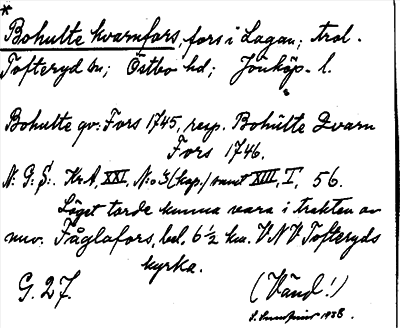 *
Bohulte kvarnfors, fors i Lagan; trol.
Tofteryd sn; Östbo hd; Jönköp. l.
Bohulte qv: Fors 1745, resp. Bohulte Qvarn
Fors 1746.
N: G: S: KrA, XXI, N:o 3 (kop.) samt XIII, I, 56.
Läget torde kunna vara i trakten av
nuv. Fåglafors, bel. 6 ½ km. VNV Tofteryds
kyrka.
G. 27. (Vänd!)
1938.